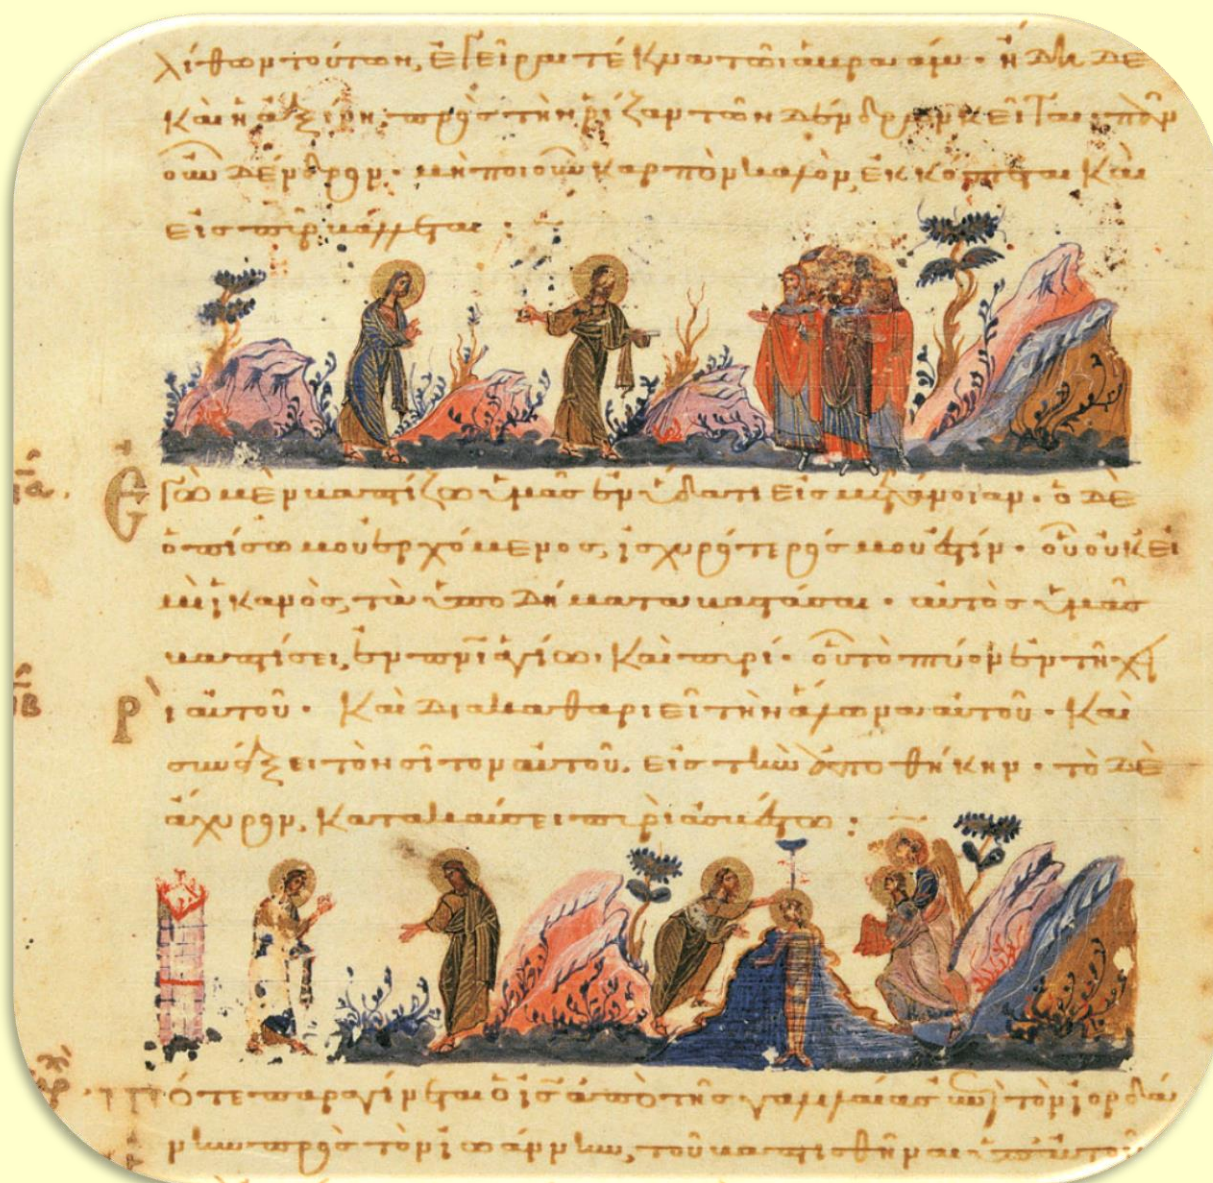 λίθων τούτων, ἐγεῖραι τέκνα τῶι ἀβραάμ· ἤδη δὲ
καὶ ἡ ἀξίνη, πρὸς τὴν ρίζαν τῶν δένδρων κεῖται· πᾶν
οὖν δένδρον· μὴ ποιοῦν καρπὸν καλὸν, ἐκκόπτεται καὶ
εἰς πῦρ βάλλεται:
Ἐγὼ μὲν βαπτίζω ὑμᾶς ἐν ὕδατι εἰς μετάνοιαν· ὁ δὲ
ὀπίσω μου ἐρχόμενος, ἰσχυρότερός μου ἐστίν· οὗ οὐκ εἰ
μὶ ἱκανὸς, τὰ ὑποδήματα βαστάσαι· αὐτὸς ὑμᾶς
βαπτίσει, ἐν πνι ἁγίωι καὶ πυρί· οὗ τὸ πτύον ἐν τῆ χει
ρὶ αὐτοῦ· καὶ διακαθαριεῖ τὴν ἅλωνα αὐτοῦ· καὶ
συνάξει τὸν σῖτον αὐτοῦ, εἰς τὴν ἀποθήκην· τὸ δὲ
ἄχυρον, κατακαύσει πυρὶ ἀσβέστω:
Τότε παραγίνεται ὁ ις ἀπὸ τῆς γαλιλαίας ἐπὶ τὸν ἰορδά
νην πρὸς τὸν ἰωάννην, τοῦ βαπτισθῆναι ὑπ' αὐτοῦ